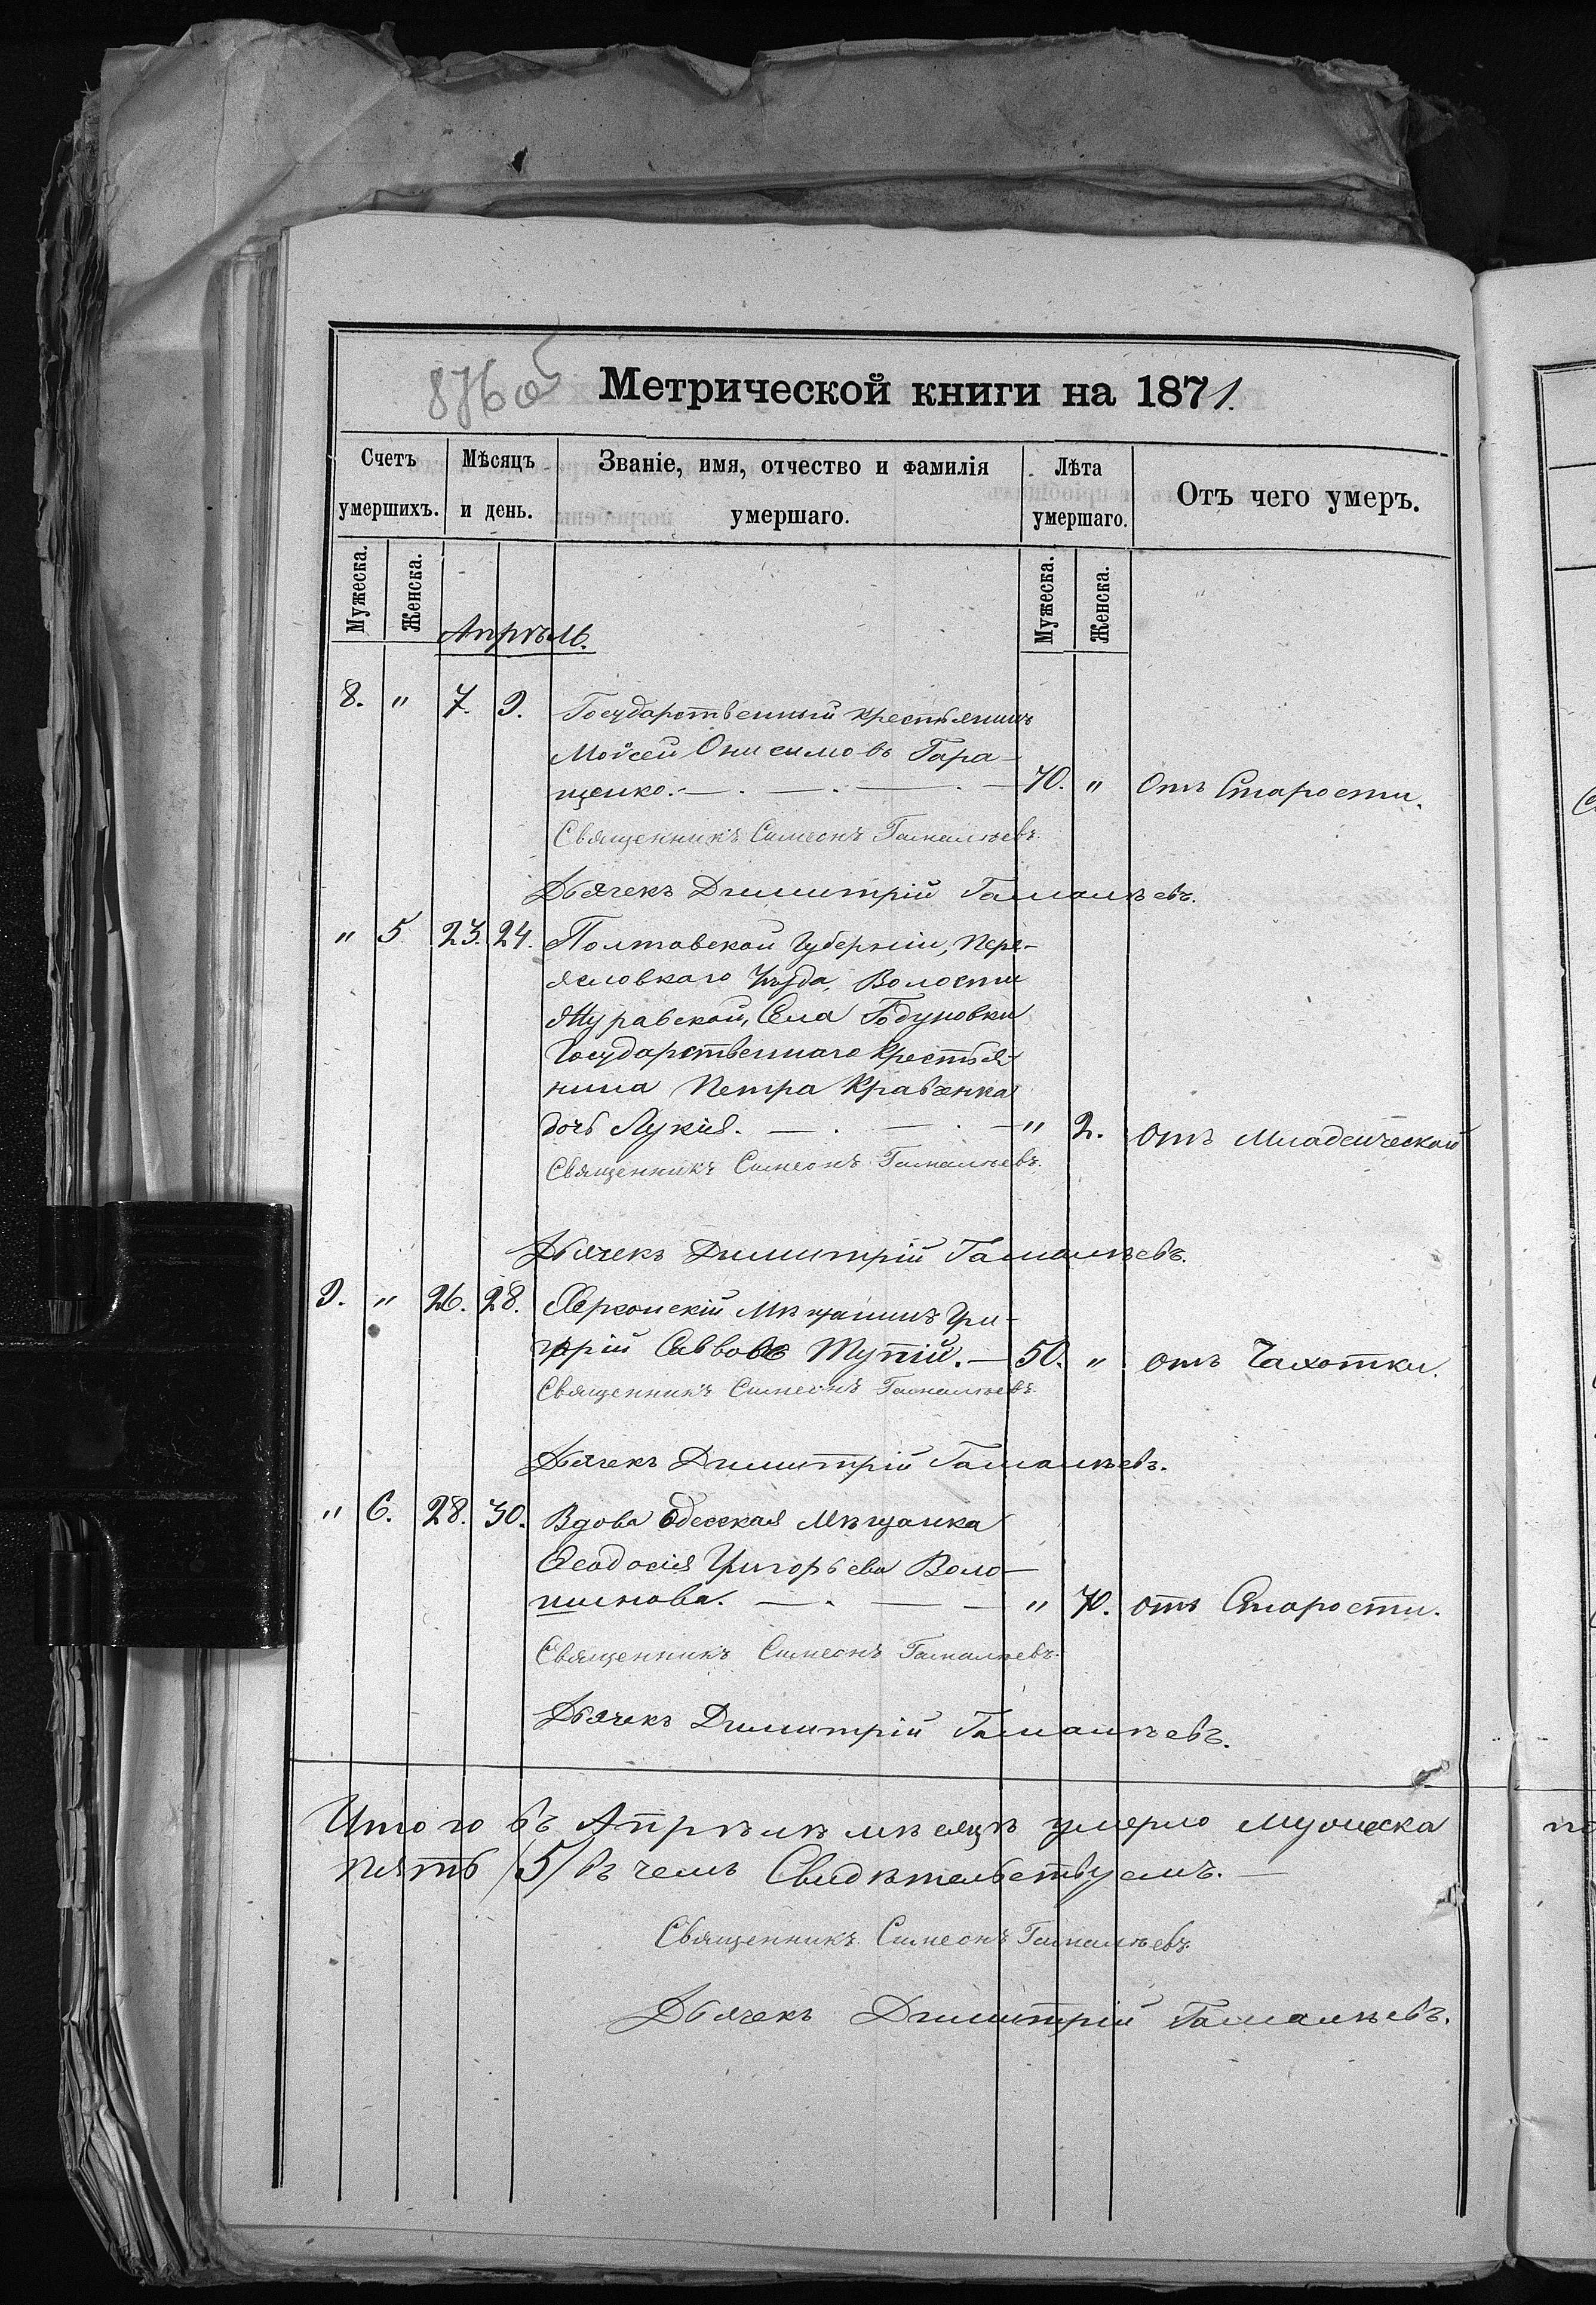 876об
Метрической книги на 1871.
Счетъ умершихъ.
Мѣсяцъ и день.
Званіе, имя, отчество и фамилія умершаго.
Лѣта умершаго.
Отъ чего умеръ.
Мужеска. Женска. Мужеска. Женска.
Апрѣль.
8. " 7. 9. Государственный крестьянинъ
Моѵсей Онисимовъ Гара-
щенко. — . — . — . — 70. " Отъ Старости.
Священникъ Симеонъ Гамалѣевъ.
Дьячекъ Димитрій Гамалѣевъ.
" 5 23. 24. Полтавской Губерніи, Пере-
яславкаго Уѣзда, Волости
Журавской, Села Годуновки
Государственнаго Крестья-
нина Петра Кравченка
дочь Лукія. — . — . — " 2. отъ Младенческой
Священникъ Симеонъ Гамалѣевъ.
Дьячекъ Димитрій Гамалѣевъ.
9. " 26. 28. Херсонскій Мѣщанинъ Гри-
горій Саввовъ Тупій. — 50. " отъ Чахотки.
Священникъ Симеонъ Гамалѣевъ.
Дьячекъ Димитрій Гамалѣевъ.
" 6. 28. 30. Вдова Одесская Мѣщанка
Ѳеодосія Григорьева Воло-
шинова. — . — — " 70. отъ Старости.
Священникъ Симеонъ Гамалѣевъ.
Дьячекъ Димитрій Гамалѣевъ.
Итого въ Апрѣлѣ мѣсяцѣ умерло мужеска
пять /5/ въ чемъ Свидѣтельствуемъ. —
Священникъ Симеонъ Гамалѣевъ.
Дьячекъ Димитрій Гамалѣевъ.